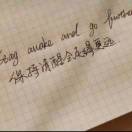 Stay awake and go further
保持清醒会走得更远